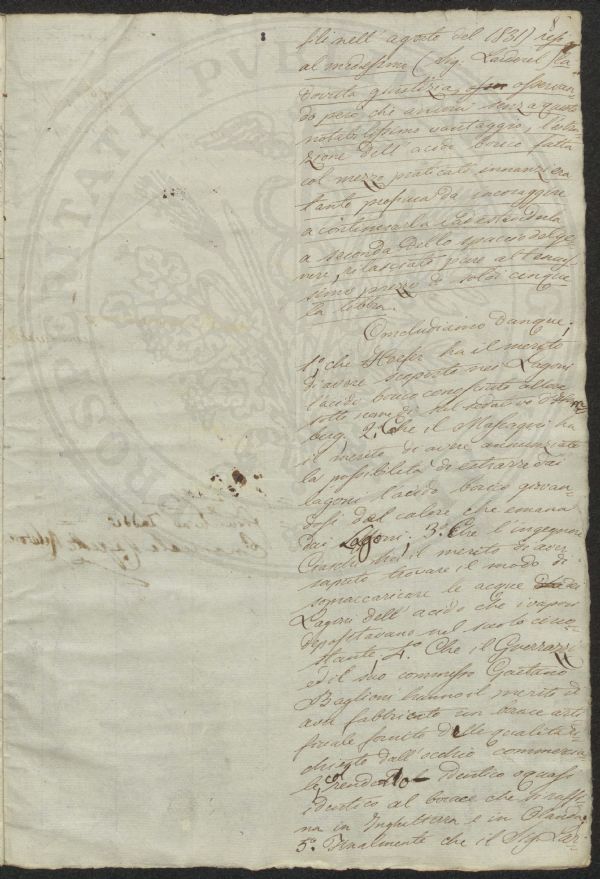 fili nell' agosto del 1831) rese
al medesimo (Sig. Larderel) la
dovuta giustizia, osservan-
do però, che ancora senza questo
notabilissimo vantaggio, l'estra-
zione dell' acido borico fatta
col mezzo praticato innanzi era
tanto proficua da incoraggire
a continuarla ed estenderla
a seconda dello spaccio del ge-
nere, rilasciato pure al tenuis-
simo prezzo di soldi cinque
la libbra.
Concludiamo dunque,
1.º che Hoefer ha il merito
d'avere scoperto nei Lagoni
l'acido borico conosciuto allora
sotto nome di sal sedativo d'Hom
berg. 2.º Che il Mascagni ha
il merito di avere annunziato
la possibilità di estrarre dai
lagoni l'acido borico giovan-
dosi del calore che emana
dai Lagoni. 3.º Che l'ingegnere
Ciaschi ebbe il merito di aver
saputo trovare il modo di
sopraccaricare le acque dei
Lagoni dell' acido che i vapori
depositavano nel suolo circo-
stante, 4.º Che il Guerrazzi
ed il suo commesso Gaetano
Baglioni hanno il merito di
aver fabbricato un borace arti
ficiale fornito delle qualità ri-
chieste dall' occhio commercia
le, col renderlo identico o quasi
identico al borace che si raffi-
na in Inghilterra e in Olanda
5.º Finalmente che il Sig. Lar-